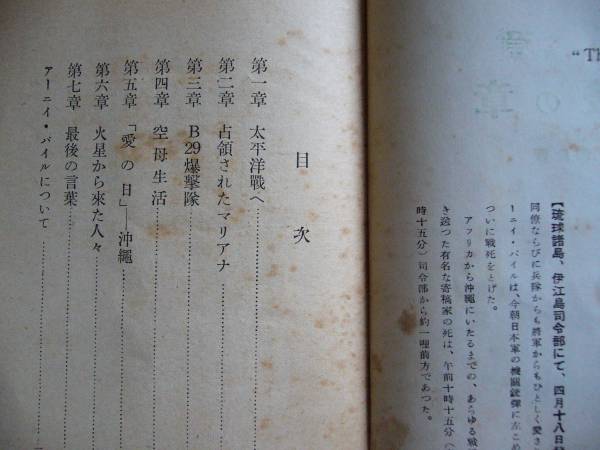 "Th
の章
【琉球諸島、伊江島司令部にて、四月十八日
同僚ならびに兵隊からも將軍からもひとしく愛さ
ーニイ・パイルは、今朝日本軍の機關銃彈に左こめ
ついに戰死をとげた。
アフリカから沖繩にいたるまでの、あらゆる戰
き送つた有名な寄稿家の死は、午前十時十五分（
時十五分）司令部から約一哩前方であつた。
目次
第一章 太平洋戰へ
第二章 占領されたマリアナ
第三章 B29爆擊隊
第四章 空母生活
第五章 「愛の日」―沖繩
第六章 火星から來た人々
第七章 最後の言葉
アーニイ・パイルについて